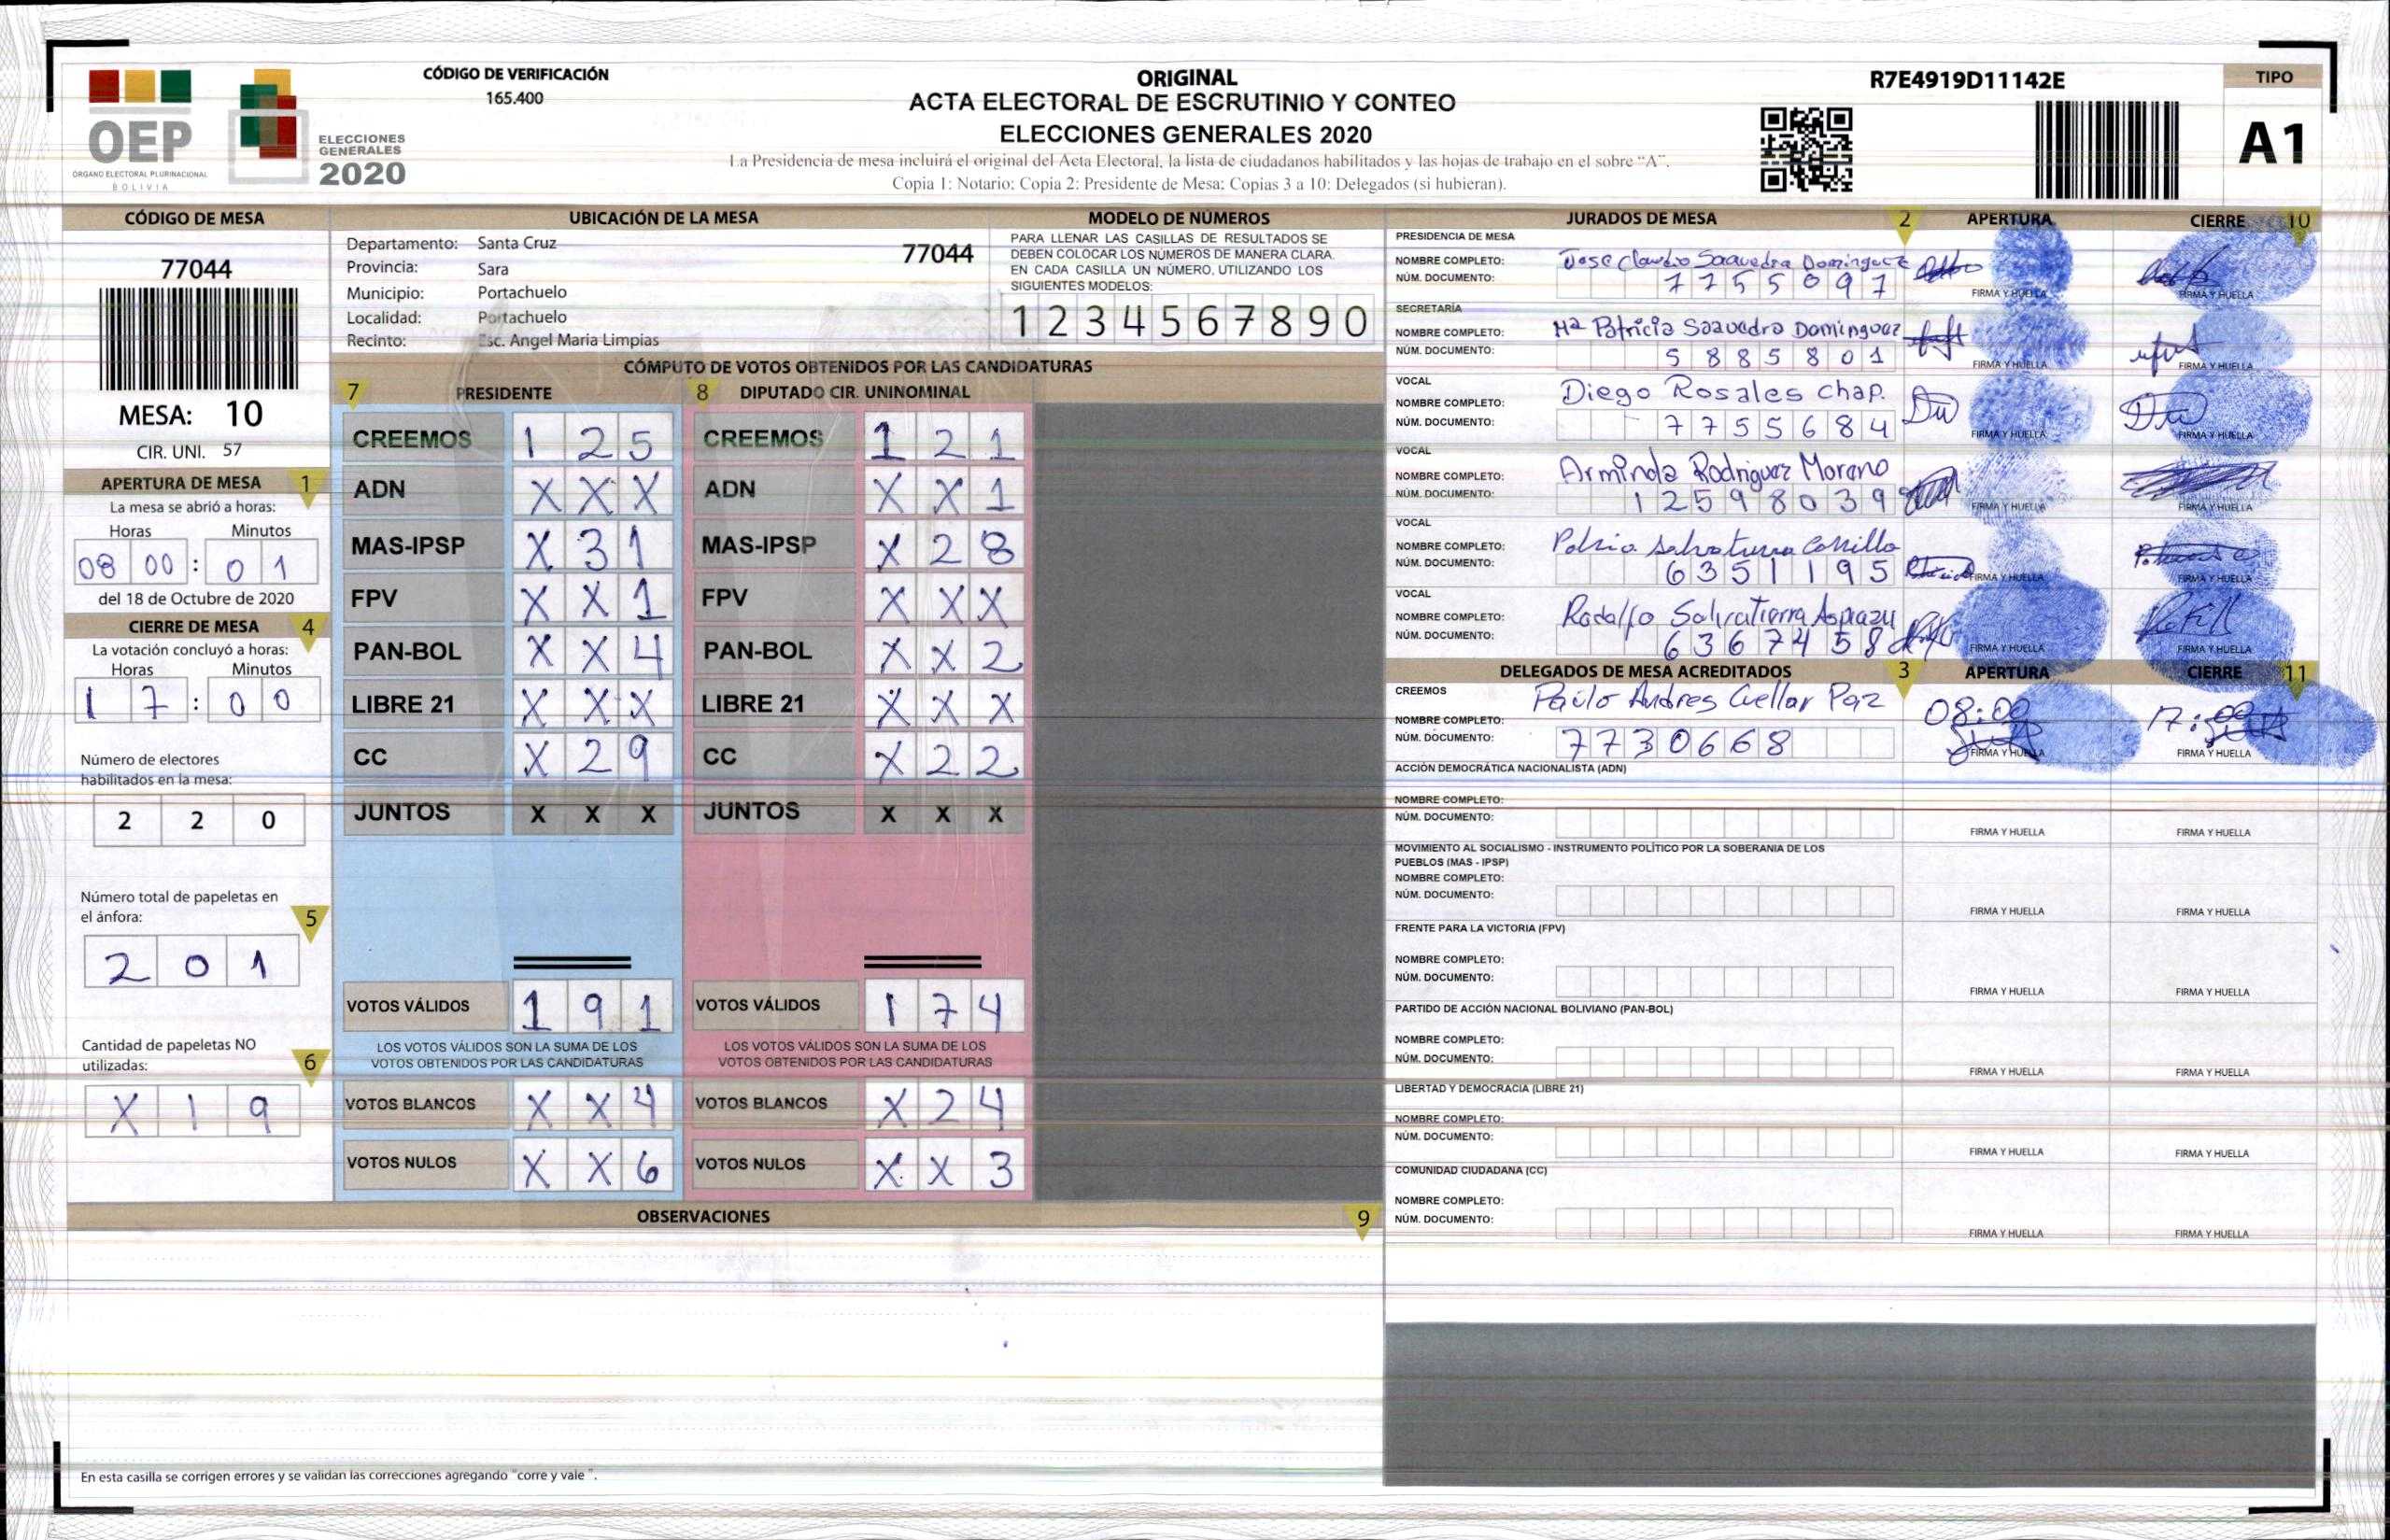 OEP
ÓRGANO ELECTORAL PLURINACIONAL
BOLIVIA
ELECCIONES
GENERALES
2020
CÓDIGO DE VERIFICACIÓN
165.400
ORIGINAL
ACTA ELECTORAL DE ESCRUTINIO Y CONTEO
ELECCIONES GENERALES 2020
La Presidencia de mesa incluirá el original del Acta Electoral, la lista de ciudadanos habilitados y las hojas de trabajo en el sobre “A”.
Copia 1: Notario; Copia 2: Presidente de Mesa; Copias 3 a 10: Delegados (si hubieran).
R7E4919D11142E
TIPO
A1
CÓDIGO DE MESA
77044
MESA: 10
CIR. UNI. 57
APERTURA DE MESA 1
La mesa se abrió a horas:
Horas Minutos
08 00 : 0 1
del 18 de Octubre de 2020
CIERRE DE MESA 4
La votación concluyó a horas:
Horas Minutos
1 7 : 0 0
Número de electores
habilitados en la mesa:
2 2 0
Número total de papeletas en
el ánfora: 5
2 0 1
Cantidad de papeletas NO
utilizadas: 6
X 1 9
UBICACIÓN DE LA MESA
Departamento: Santa Cruz 77044
Provincia: Sara
Municipio: Portachuelo
Localidad: Portachuelo
Recinto: Esc. Angel Maria Limpias
MODELO DE NÚMEROS
PARA LLENAR LAS CASILLAS DE RESULTADOS SE
DEBEN COLOCAR LOS NÚMEROS DE MANERA CLARA.
EN CADA CASILLA UN NÚMERO, UTILIZANDO LOS
SIGUIENTES MODELOS:
1 2 3 4 5 6 7 8 9 0
CÓMPUTO DE VOTOS OBTENIDOS POR LAS CANDIDATURAS
7 PRESIDENTE 8 DIPUTADO CIR. UNINOMINAL
CREEMOS 1 2 5 CREEMOS 1 2 1
ADN X X X ADN X X 1
MAS-IPSP X 3 1 MAS-IPSP X 2 8
FPV X X 1 FPV X X X
PAN-BOL X X 4 PAN-BOL X X 2
LIBRE 21 X X X LIBRE 21 X X X
CC X 2 9 CC X 2 2
JUNTOS X X X JUNTOS X X X
VOTOS VÁLIDOS 1 9 1 VOTOS VÁLIDOS 1 7 4
LOS VOTOS VÁLIDOS SON LA SUMA DE LOS
VOTOS OBTENIDOS POR LAS CANDIDATURAS
LOS VOTOS VÁLIDOS SON LA SUMA DE LOS
VOTOS OBTENIDOS POR LAS CANDIDATURAS
VOTOS BLANCOS X X 4 VOTOS BLANCOS X 2 4
VOTOS NULOS X X 6 VOTOS NULOS X X 3
OBSERVACIONES 9
En esta casilla se corrigen errores y se validan las correcciones agregando "corre y vale ".
JURADOS DE MESA 2 APERTURA CIERRE 10
PRESIDENCIA DE MESA
NOMBRE COMPLETO: Jose Claudio Saavedra Dominguez
NÚM. DOCUMENTO: 7 7 5 5 0 9 7
FIRMA Y HUELLA FIRMA Y HUELLA
SECRETARÍA
NOMBRE COMPLETO: Mª Patricia Saavedra Dominguez
NÚM. DOCUMENTO: 5 8 8 5 8 0 1
FIRMA Y HUELLA FIRMA Y HUELLA
VOCAL
NOMBRE COMPLETO: Diego Rosales Chap.
NÚM. DOCUMENTO: 7 7 5 5 6 8 4
FIRMA Y HUELLA FIRMA Y HUELLA
VOCAL
NOMBRE COMPLETO: Arminda Rodriguez Moreno
NÚM. DOCUMENTO: 1 2 5 9 8 0 3 9
FIRMA Y HUELLA FIRMA Y HUELLA
VOCAL
NOMBRE COMPLETO:
NÚM. DOCUMENTO: 6 3 5 1 1 9 5
FIRMA Y HUELLA FIRMA Y HUELLA
VOCAL
NOMBRE COMPLETO: Rodolfo Salvatierra Aspiazu
NÚM. DOCUMENTO: 6 3 6 7 4 5 8
FIRMA Y HUELLA FIRMA Y HUELLA
DELEGADOS DE MESA ACREDITADOS 3 APERTURA CIERRE 11
CREEMOS
NOMBRE COMPLETO: Paulo Andres Cuellar Paz 08:00 17:00
NÚM. DOCUMENTO: 7 7 3 0 6 6 8
FIRMA Y HUELLA FIRMA Y HUELLA
ACCIÓN DEMOCRÁTICA NACIONALISTA (ADN)
NOMBRE COMPLETO:
NÚM. DOCUMENTO:
FIRMA Y HUELLA FIRMA Y HUELLA
MOVIMIENTO AL SOCIALISMO - INSTRUMENTO POLÍTICO POR LA SOBERANIA DE LOS
PUEBLOS (MAS - IPSP)
NOMBRE COMPLETO:
NÚM. DOCUMENTO:
FIRMA Y HUELLA FIRMA Y HUELLA
FRENTE PARA LA VICTORIA (FPV)
NOMBRE COMPLETO:
NÚM. DOCUMENTO:
FIRMA Y HUELLA FIRMA Y HUELLA
PARTIDO DE ACCIÓN NACIONAL BOLIVIANO (PAN-BOL)
NOMBRE COMPLETO:
NÚM. DOCUMENTO:
FIRMA Y HUELLA FIRMA Y HUELLA
LIBERTAD Y DEMOCRACIA (LIBRE 21)
NOMBRE COMPLETO:
NÚM. DOCUMENTO:
FIRMA Y HUELLA FIRMA Y HUELLA
COMUNIDAD CIUDADANA (CC)
NOMBRE COMPLETO:
NÚM. DOCUMENTO:
FIRMA Y HUELLA FIRMA Y HUELLA